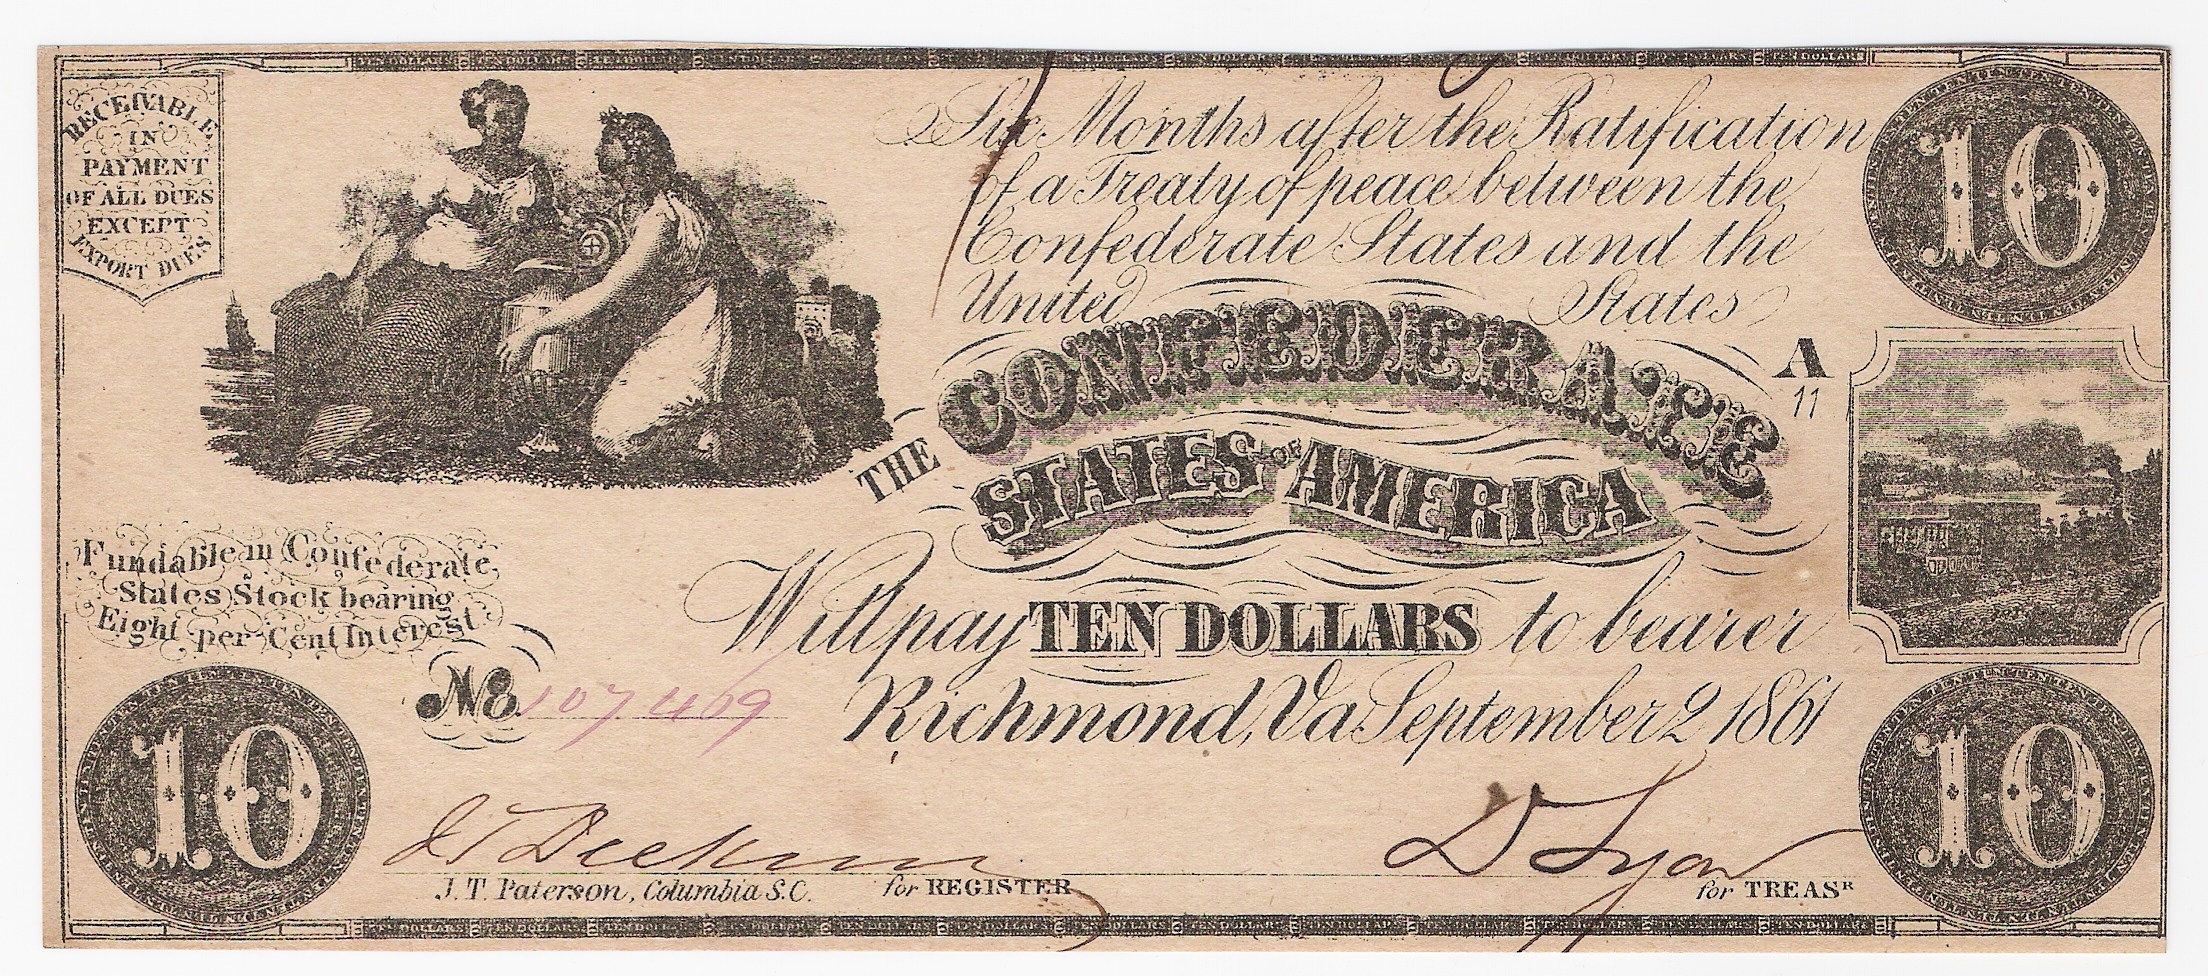 RECEIVABLE
IN
PAYMENT
OF ALL DUES
EXCEPT
EXPORT DUES
Six Months after the Ratification
of a Treaty of peace between the
Confederate States and the
United States
10
A
11
THE CONFEDERATE
STATES OF AMERICA
Fundable in Confederate
States Stock bearing
Eight per Cent Interest
Will pay TEN DOLLARS to bearer
No. 107469
Richmond, Va September 2 1861
10
10
J.T. Paterson, Columbia S.C.
for REGISTER
D Lyon
for TREASR